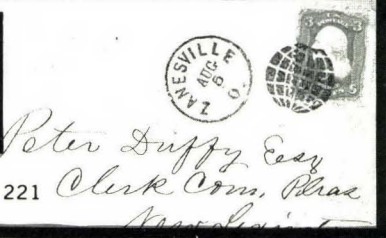 3 U.S. POSTAGE 3
ZANESVILLE O.
AUG
6
Peter Duffy Esq
221 Clerk Com, Pleas
New Lexingt